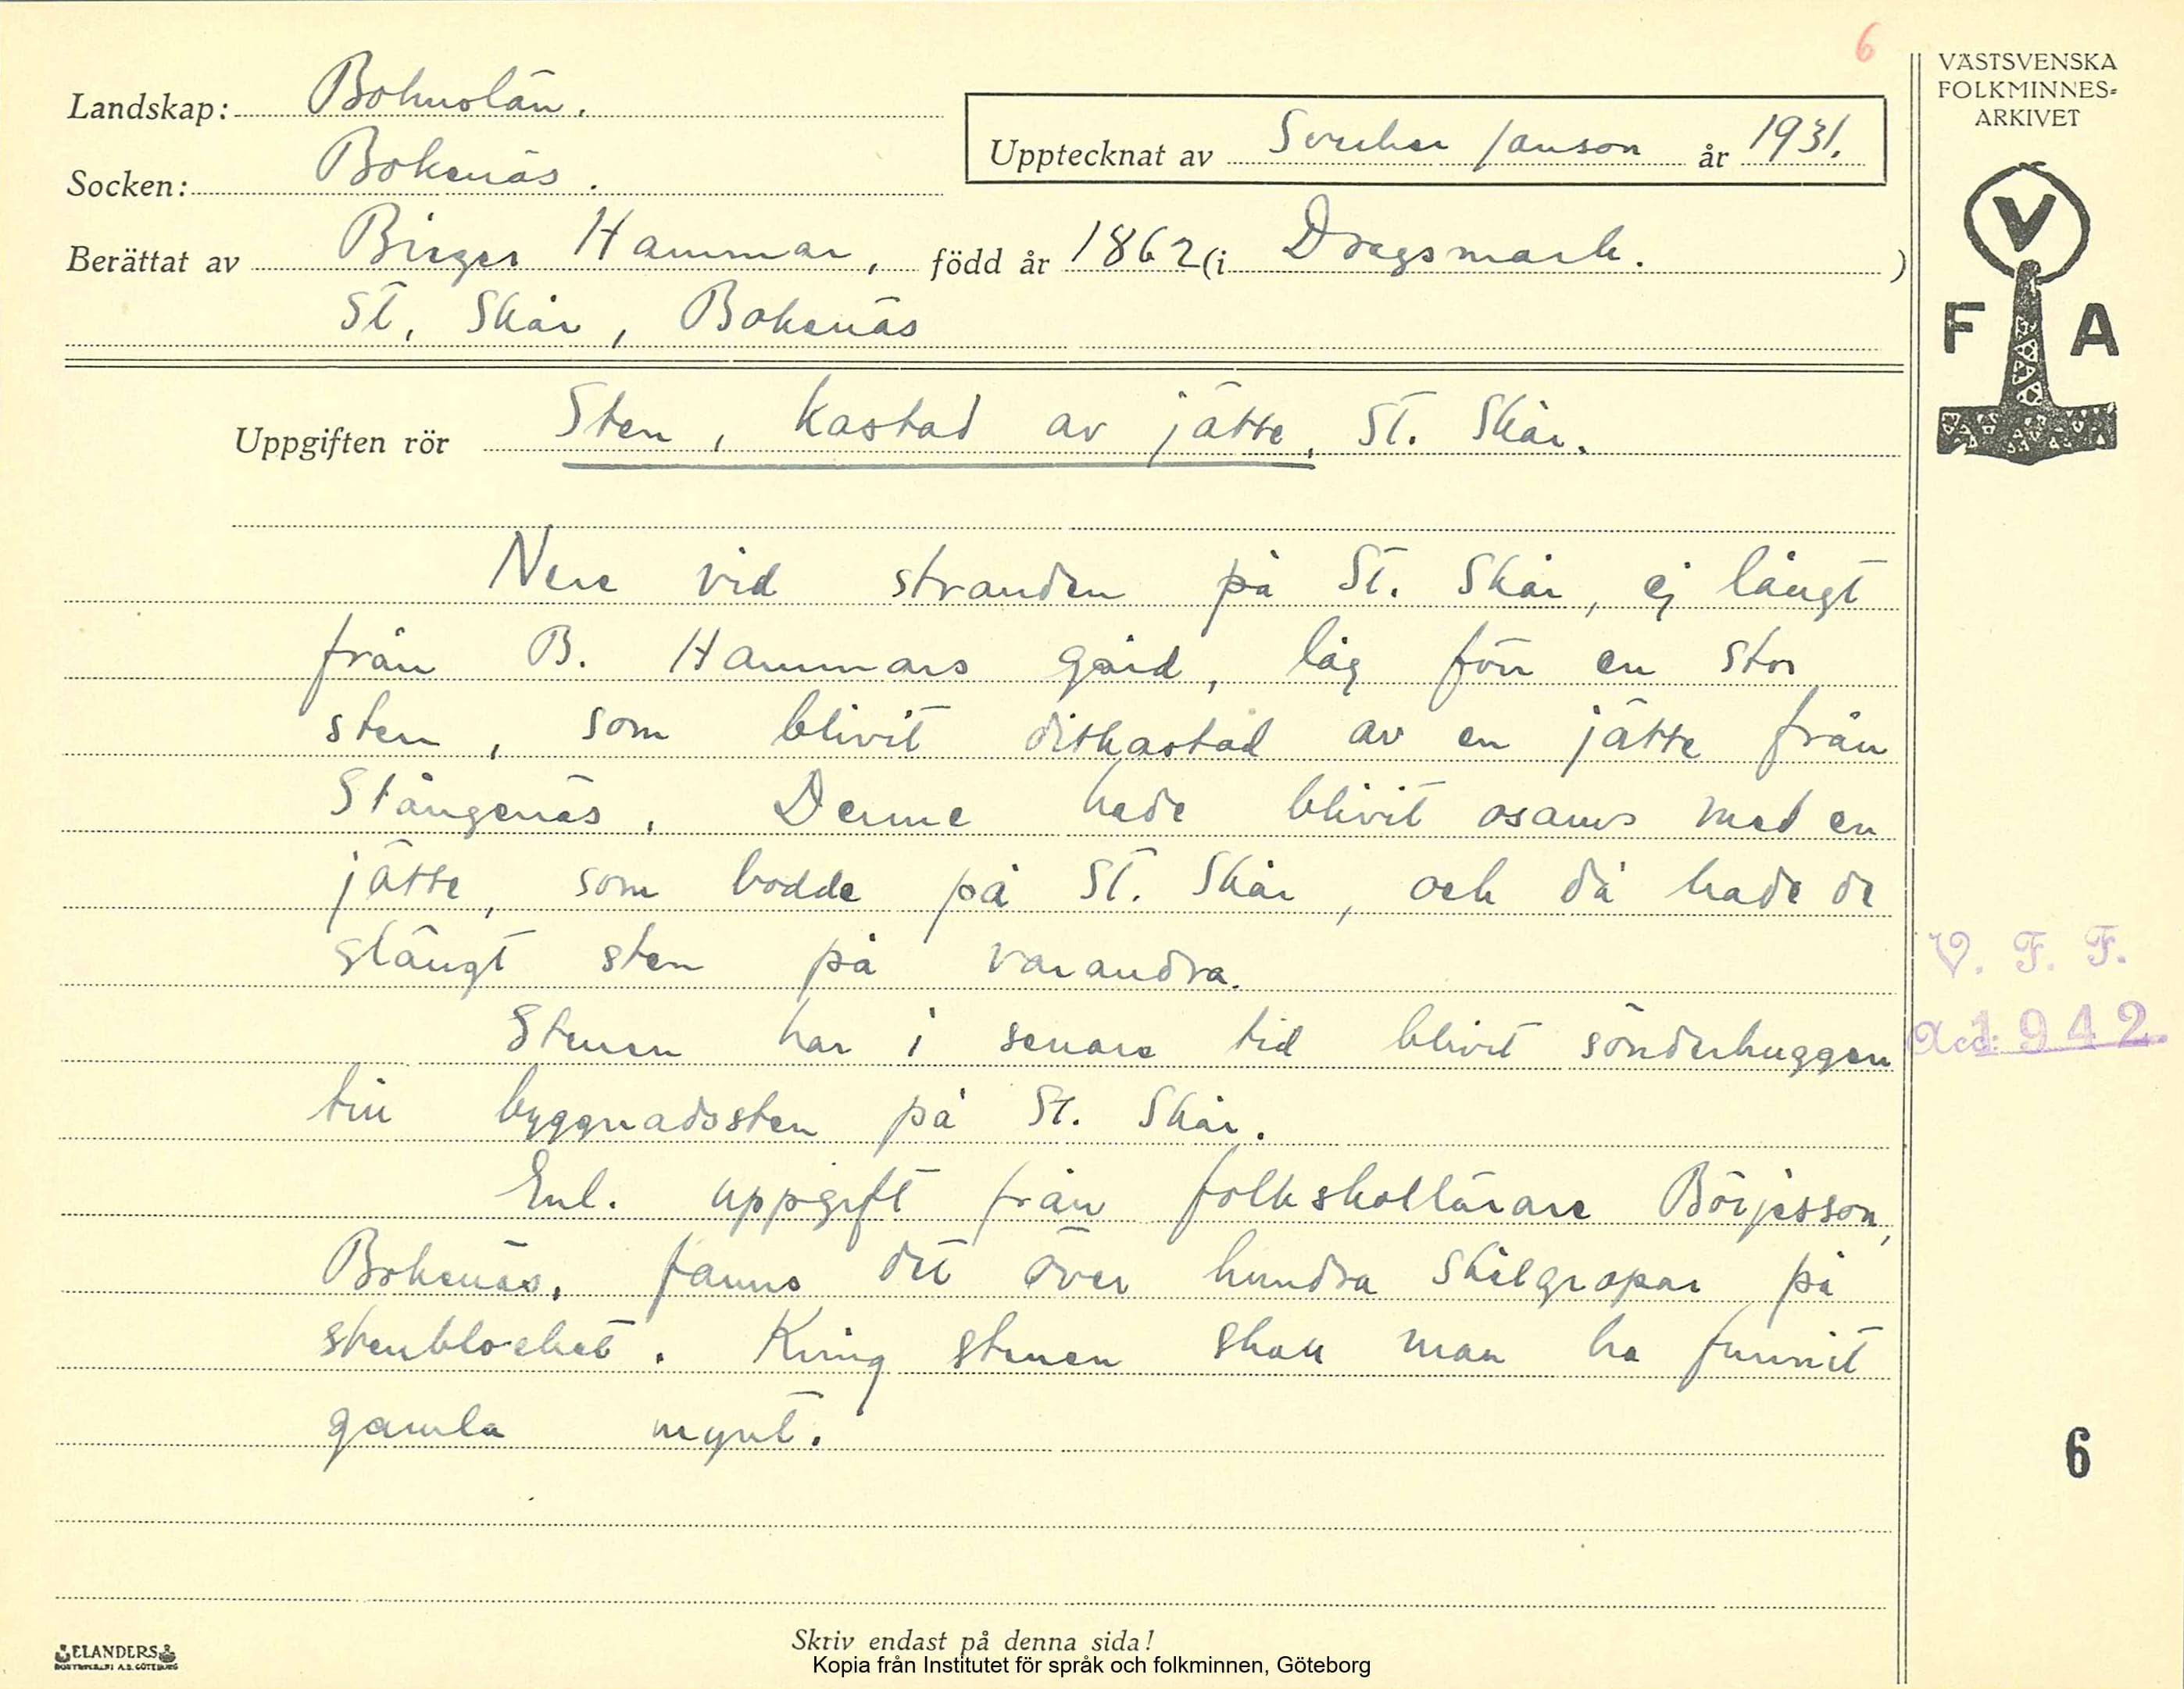 6
VÄSTSVENSKA
FOLKMINNES-
ARKIVET
Landskap: Bohuslän.
Upptecknat av Sverker Janson år 1931.
Socken: Bokenäs.
Berättat av Birger Hammar, född år 1862 (i Dragsmark.)
St. Skår, Bokenäs
V
F A
Uppgiften rör Sten, kastad av jätte, St. Skår.
Nere vid stranden på St. Skår, ej långt
från B. Hammars gård, låg förr en stor
sten, som blivit ditkastad av en jätte från
Stångenäs. Denne hade blivit osams med en
jätte, som bodde på St. Skår, och då hade de
slängt sten på varandra.
V. F. F.
Stenen har i senare tid blivit sönderhuggen
Acc: 1942.
till byggnadssten på St. Skår.
Enl. uppgift från folkskollärare Börjesson,
Bokenäs, fanns det över hundra skålgropar på
stenblocket. Kring stenen skall man ha funnit
gamla mynt.
6
ELANDERS
BOKTRYCKERI A.B. GÖTEBORG
Skriv endast på denna sida!
Kopia från Institutet för språk och folkminnen, Göteborg